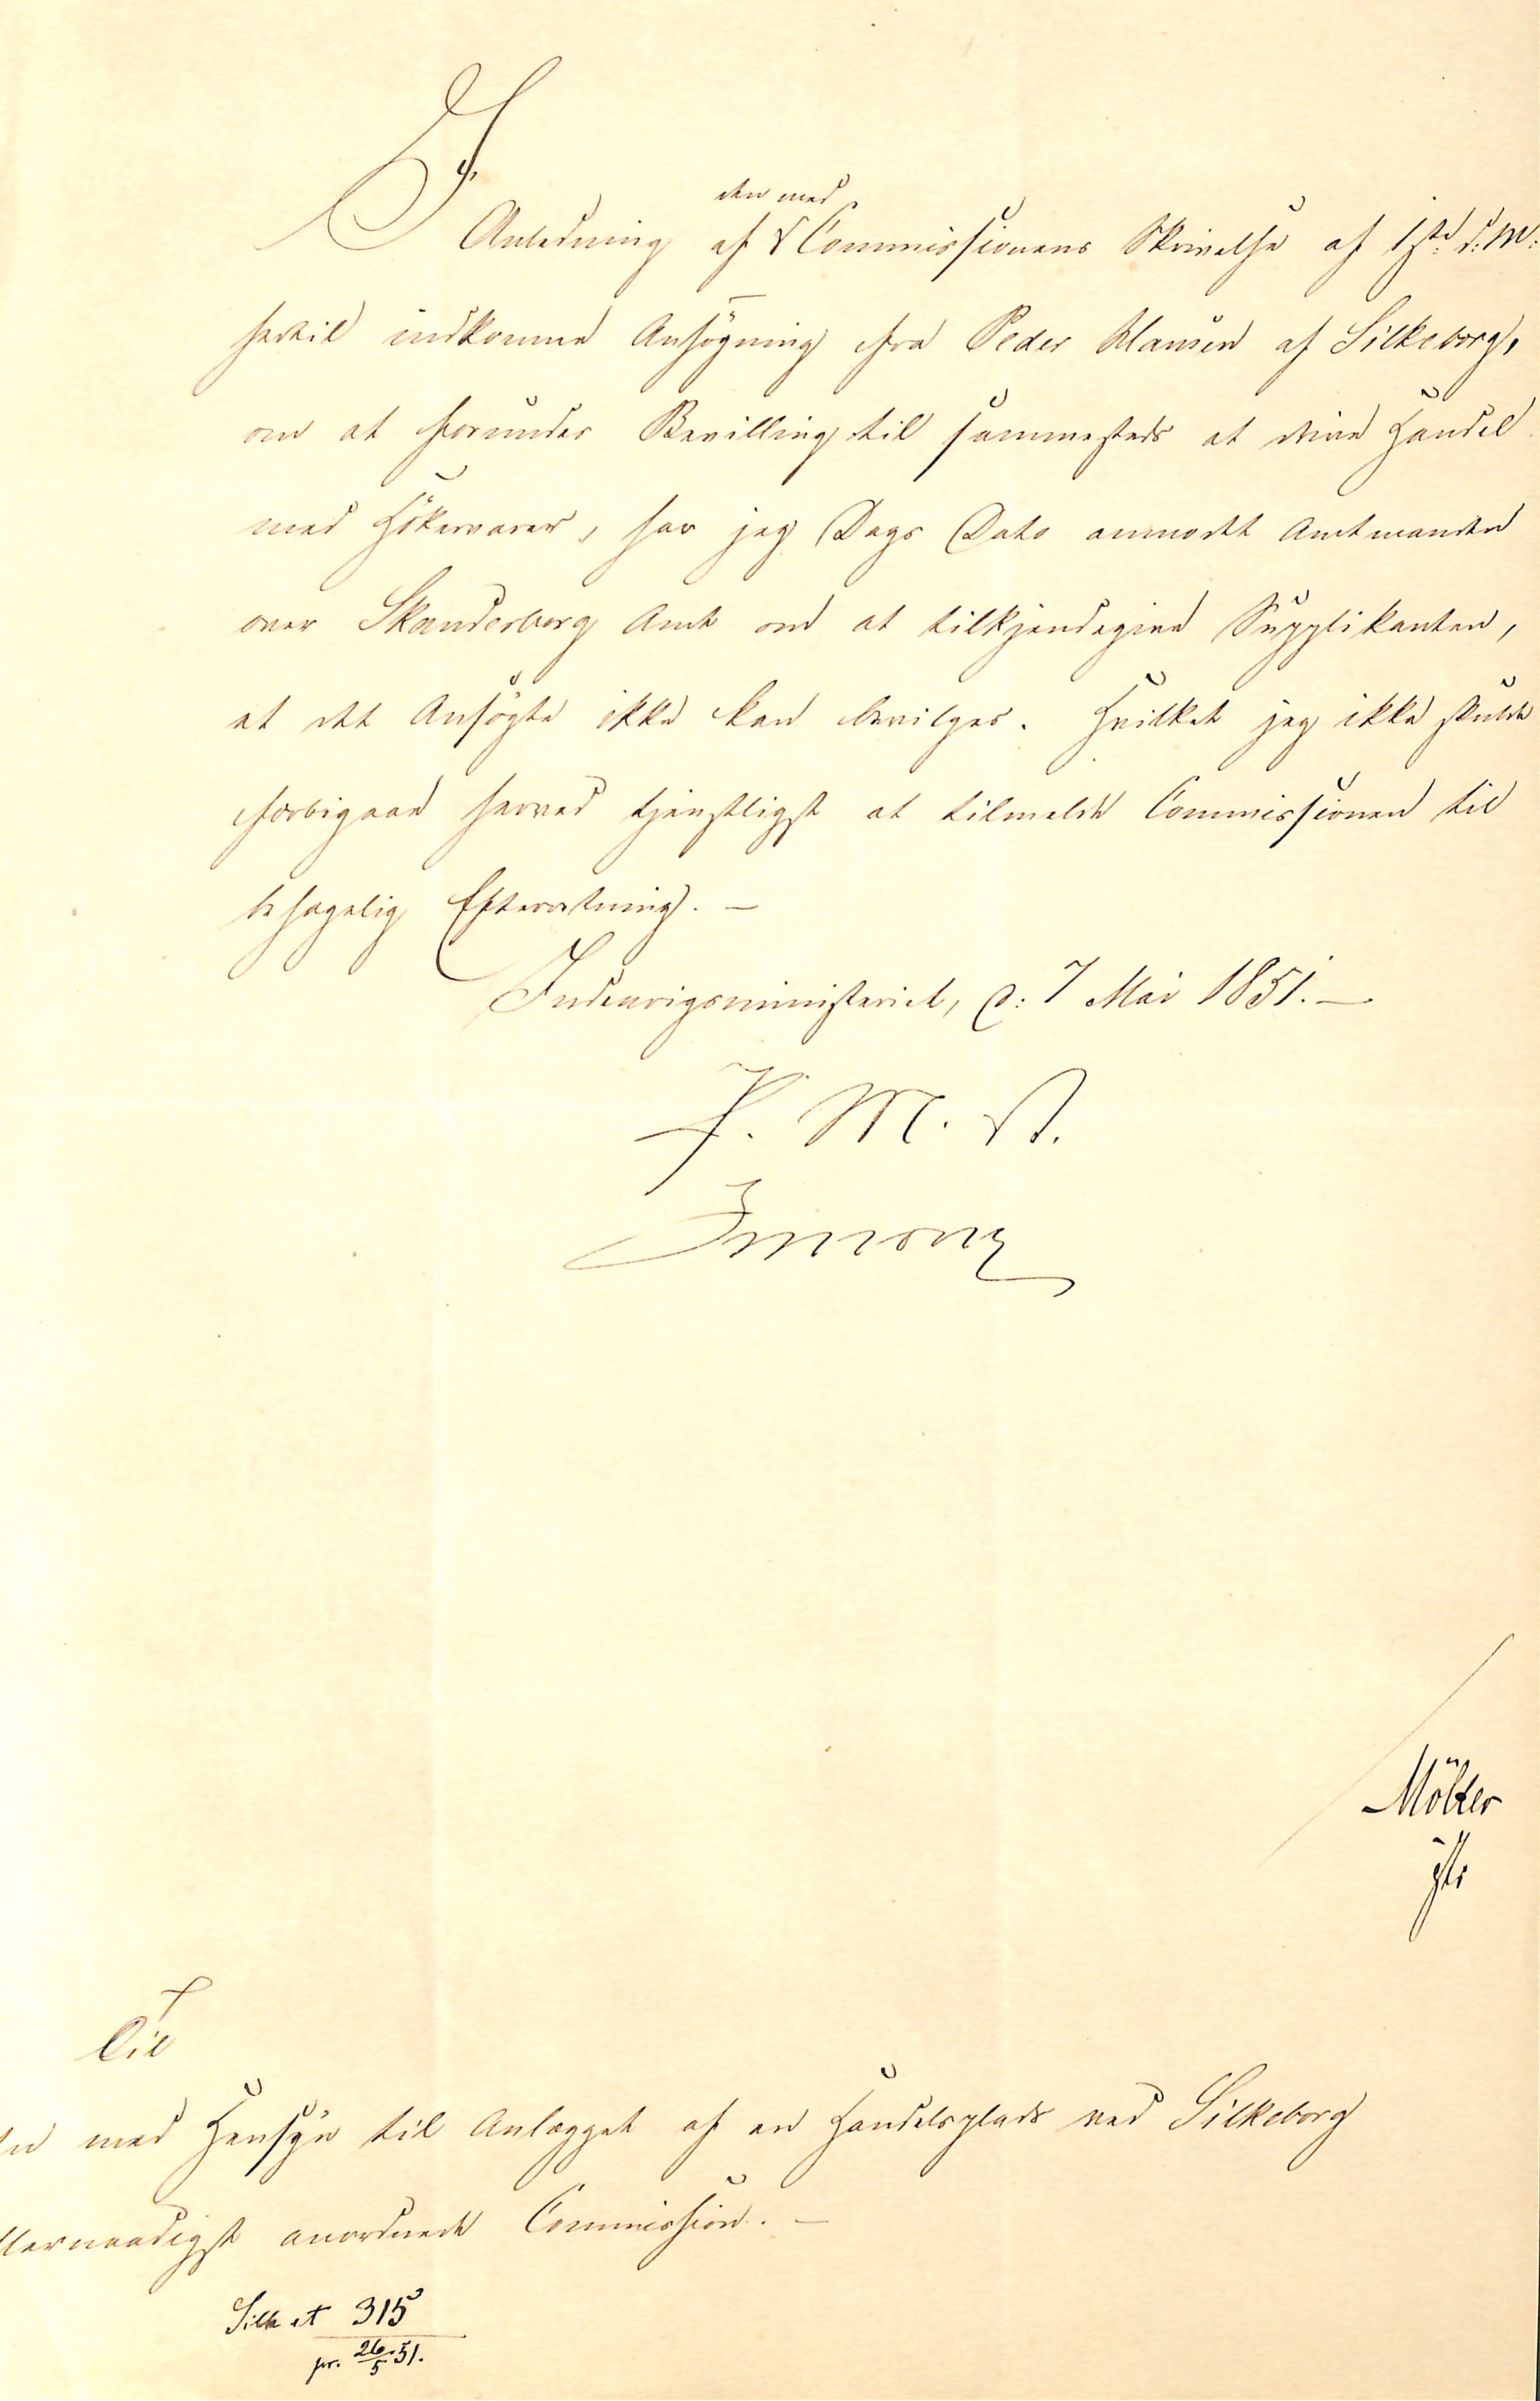 I
den med
Anledning af Commissionens Skrivelse af 1ste d: M:
hertil indkomne Ansøgning fra Peder Hansen af Silkeborg,
om at forundes Bevilling til sammesteds at drive Handel
med Hökervarer, har jeg Dags Dato anmodet Amtmanden
over Skanderborg Amt om at tilkjendegive Supplikanten,
at det Ansögte ikke kan bevilges. Hvilket jeg ikke skulde
forbigaae herved tjenstligst at tilmelde Commissionen til
behagelig Efterretning. —
Indenrigsministeriet, d: 7 Mai 1851. —
F. M. A.
Simony
Til
den med Hensyn til Anlægget af en Handelsplads ved Silkeborg
allernaadigst anordnede Commission. —
Silk 315
pr. 26/5 51.